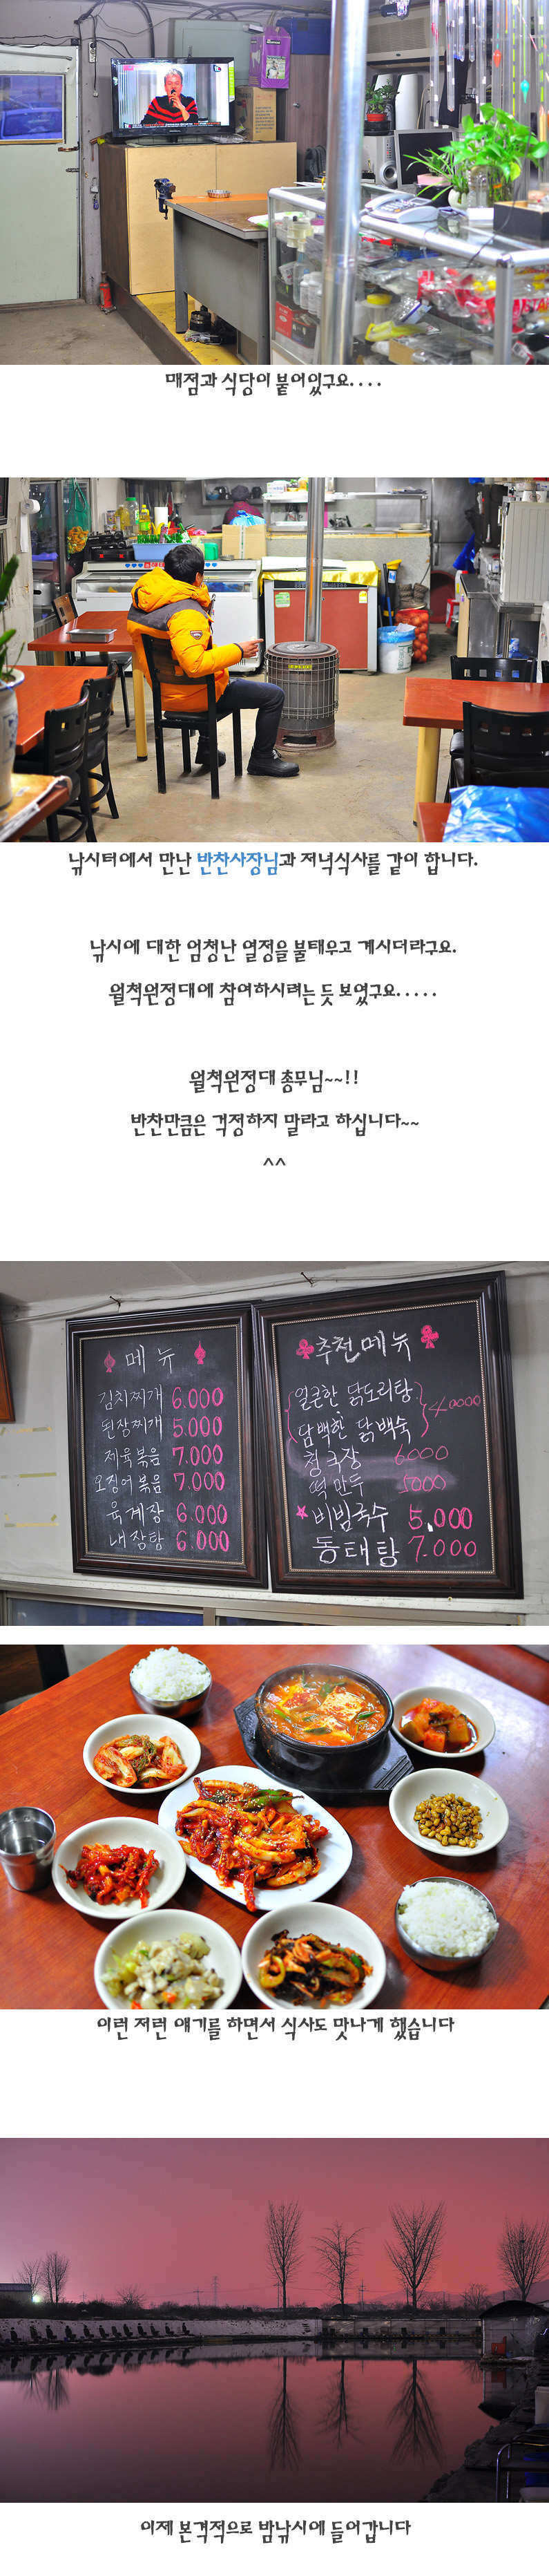 매점과 식당이 붙어있구요....
낚시터에서 만난 반찬사장님과 저녁식사를 같이 합니다.
낚시에 대한 엄청난 열정을 불태우고 계시더라구요.
월척원정대에 참여하시려는 듯 보였구요.....
월척원정대 총무님~~!!
반찬만큼은 걱정하지 말라고 하십니다~~
^^
메뉴
김치찌개 6.000
된장찌개 5.000
제육볶음 7.000
오징어볶음 7.000
육계장 6.000
내장탕 6.000
추천메뉴
얼큰한 닭도리탕
담백한 닭백숙
40000
청국장 6000
떡만두 5000
비빔국수 5.000
동태탕 7.000
이런 저런 얘기를 하면서 식사도 맛나게 했습니다
이제 본격적으로 밤낚시에 들어갑니다